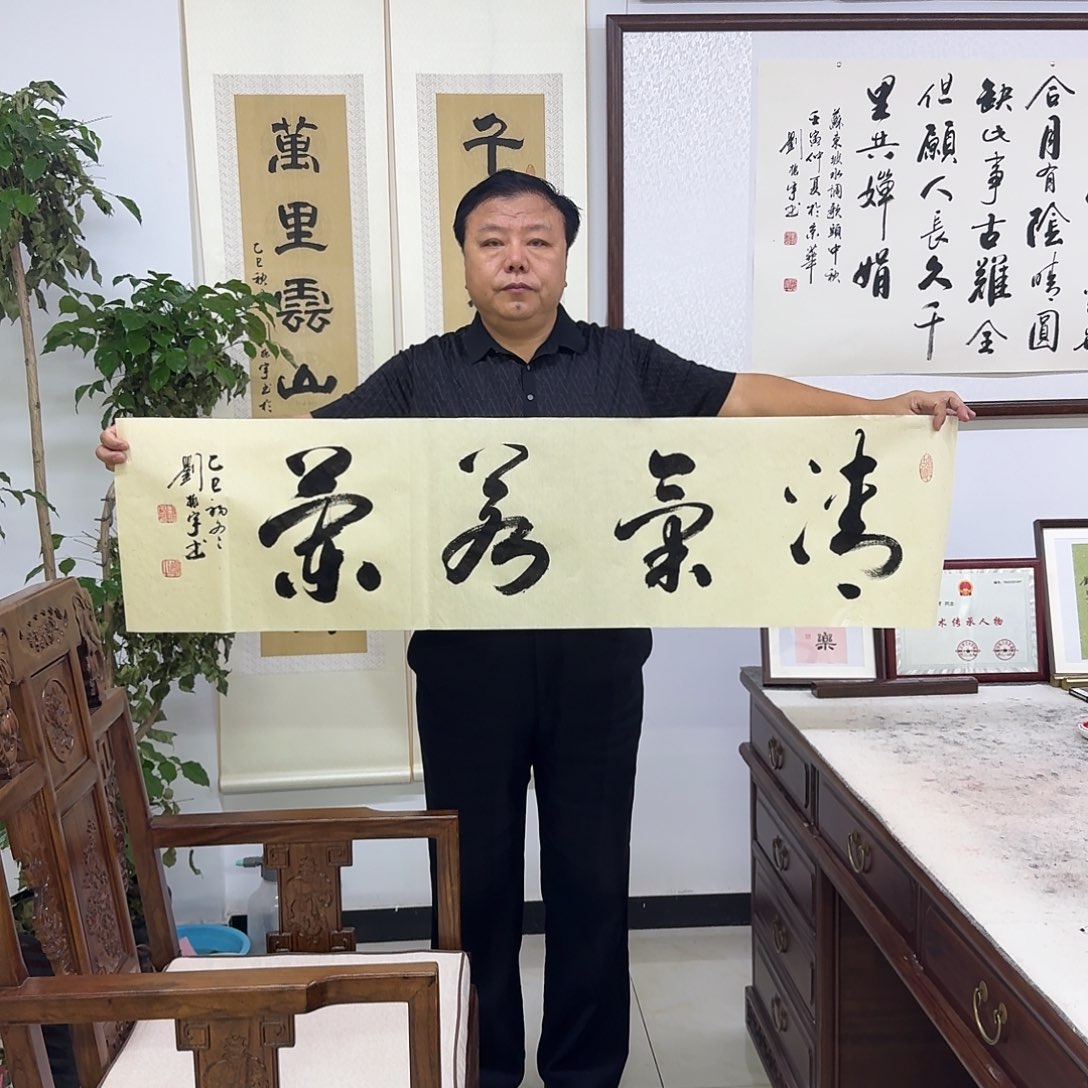 清氣若蘭
乙巳初冬
劉振宇书
千
萬里雲山
乙巳秋
合月有陰晴圓
缺此事古難全
但願人長久千
里共嬋娟
蘇東坡水調歌頭中秋
壬寅仲夏於京華
劉振宇书
樂
术传承人物